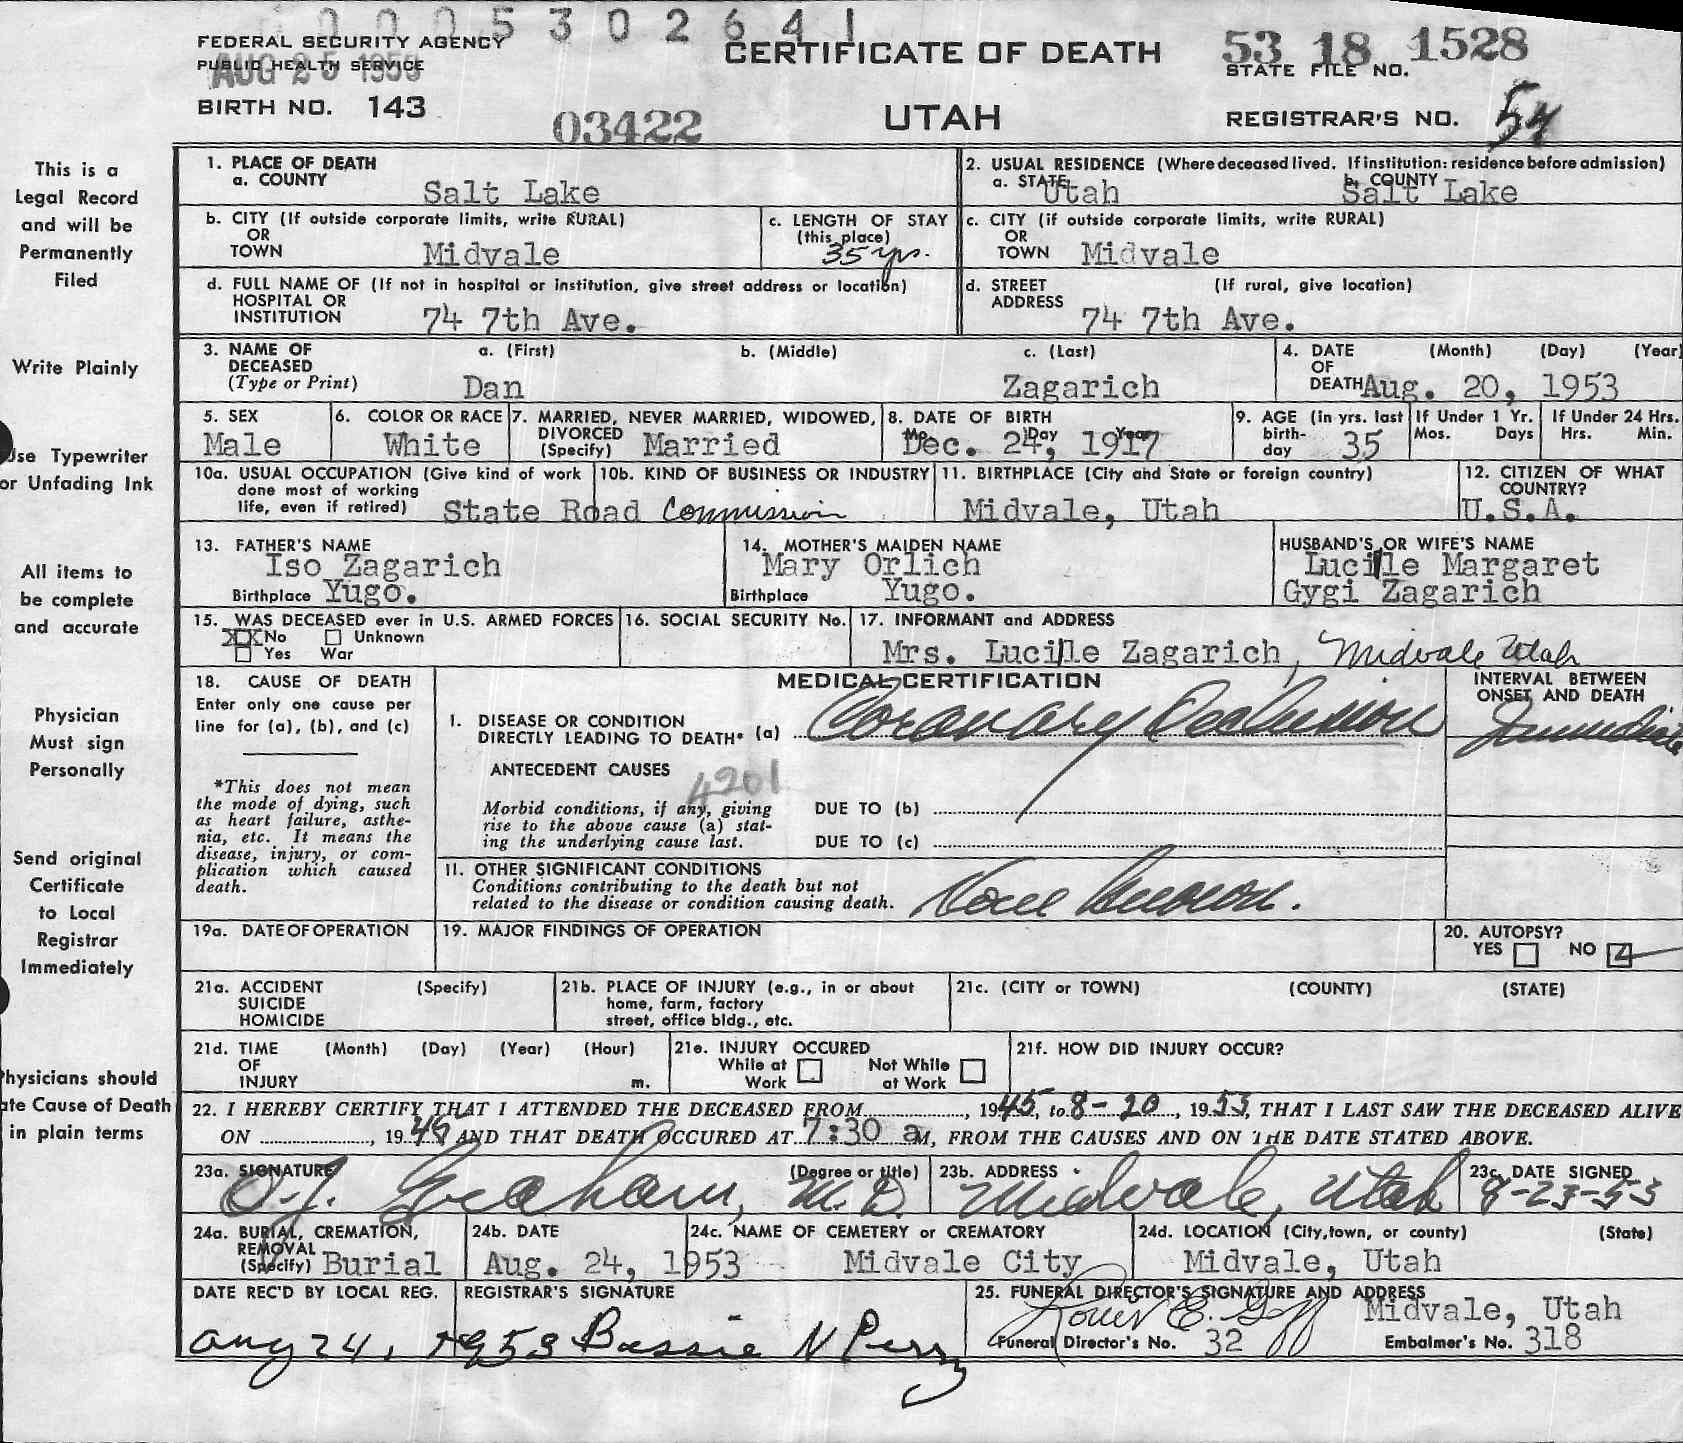 0005302641
FEDERAL SECURITY AGENCY
PUBLIC HEALTH SERVICE
AUG 25 1953
CERTIFICATE OF DEATH
53 18 1528
STATE FILE NO.
BIRTH NO. 143
03422
UTAH
REGISTRAR'S NO. 54
This is a
Legal Record
and will be
Permanently
Filed
Write Plainly
Use Typewriter
or Unfading Ink
All items to
be complete
and accurate
Physician
Must sign
Personally
Send original
Certificate
to Local
Registrar
Immediately
Physicians should
ate Cause of Death
in plain terms
1. PLACE OF DEATH
a. COUNTY
Salt Lake
2. USUAL RESIDENCE (Where deceased lived. If institution: residence before admission)
a. STATE Utah b. COUNTY Salt Lake
b. CITY (If outside corporate limits, write RURAL)
OR
TOWN Midvale
c. LENGTH OF STAY
(this place)
35 yrs.
c. CITY (if outside corporate limits, write RURAL)
OR
TOWN Midvale
d. FULL NAME OF (If not in hospital or institution, give street address or location)
HOSPITAL OR
INSTITUTION 74 7th Ave.
d. STREET (If rural, give location)
ADDRESS
74 7th Ave.
3. NAME OF a. (First) b. (Middle) c. (Last)
DECEASED
(Type or Print) Dan Zagarich
4. DATE (Month) (Day) (Year)
OF
DEATH Aug. 20, 1953
5. SEX
Male
6. COLOR OR RACE
White
7. MARRIED, NEVER MARRIED, WIDOWED,
DIVORCED
(Specify) Married
8. DATE OF BIRTH
Mo. Day Year
Dec. 24, 1917
9. AGE (in yrs. last
birth-
day 35
If Under 1 Yr.
Mos. Days
If Under 24 Hrs.
Hrs. Min.
10a. USUAL OCCUPATION (Give kind of work
done most of working
life, even if retired) State Road Commission
10b. KIND OF BUSINESS OR INDUSTRY
11. BIRTHPLACE (City and State or foreign country)
Midvale, Utah
12. CITIZEN OF WHAT
COUNTRY?
U.S.A.
13. FATHER'S NAME
Iso Zagarich
Birthplace Yugo.
14. MOTHER'S MAIDEN NAME
Mary Orlich
Birthplace Yugo.
HUSBAND'S OR WIFE'S NAME
Lucille Margaret
Gygi Zagarich
15. WAS DECEASED ever in U.S. ARMED FORCES
XX No Unknown
Yes War
16. SOCIAL SECURITY No.
17. INFORMANT and ADDRESS
Mrs. Lucille Zagarich, Midvale Utah
18. CAUSE OF DEATH
Enter only one cause per
line for (a), (b), and (c)
*This does not mean
the mode of dying, such
as heart failure, asthe-
nia, etc. It means the
disease, injury, or com-
plication which caused
death.
MEDICAL CERTIFICATION
INTERVAL BETWEEN
ONSET AND DEATH
I. DISEASE OR CONDITION
DIRECTLY LEADING TO DEATH* (a) Coronary Occlusion
Immediate
ANTECEDENT CAUSES
4201
Morbid conditions, if any, giving
rise to the above cause (a) stat-
ing the underlying cause last.
DUE TO (b)
DUE TO (c)
11. OTHER SIGNIFICANT CONDITIONS
Conditions contributing to the death but not
related to the disease or condition causing death.
None known.
19a. DATE OF OPERATION
19. MAJOR FINDINGS OF OPERATION
20. AUTOPSY?
YES NO
21a. ACCIDENT (Specify)
SUICIDE
HOMICIDE
21b. PLACE OF INJURY (e.g., in or about
home, farm, factory
street, office bldg., etc.
21c. (CITY or TOWN) (COUNTY) (STATE)
21d. TIME (Month) (Day) (Year) (Hour)
OF
INJURY m.
21e. INJURY OCCURED
While at Work
Not While at Work
21f. HOW DID INJURY OCCUR?
22. I HEREBY CERTIFY THAT I ATTENDED THE DECEASED FROM , 1945, to 8-20, 1953, THAT I LAST SAW THE DECEASED ALIVE
ON , 19 AND THAT DEATH OCCURED AT 7:30 a M, FROM THE CAUSES AND ON THE DATE STATED ABOVE.
23a. SIGNATURE (Degree or title)
O.J. Graham, M.D.
23b. ADDRESS
Midvale, Utah
23c. DATE SIGNED
8-23-53
24a. BURIAL, CREMATION,
REMOVAL
(Specify) Burial
24b. DATE
Aug. 24, 1953
24c. NAME OF CEMETERY or CREMATORY
Midvale City
24d. LOCATION (City, town, or county) (State)
Midvale, Utah
DATE REC'D BY LOCAL REG.
Aug 24, 1953
REGISTRAR'S SIGNATURE
Bessie N Perry
25. FUNERAL DIRECTOR'S SIGNATURE AND ADDRESS
Louis E. Goff Midvale, Utah
Funeral Director's No. 32 Embalmer's No. 318